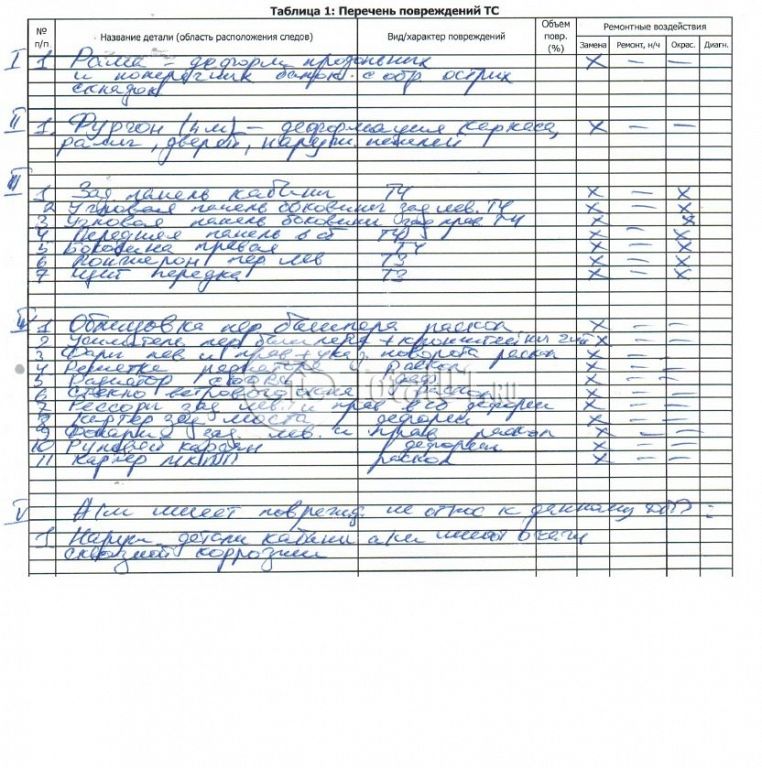 Таблица 1: Перечень повреждений ТС
№ п/п Название детали (область расположения следов) Вид/характер повреждений Объем повр. (%) Ремонтные воздействия
Замена Ремонт, н/ч Окрас. Диагн.
I 1 Рама – деформ продольных X – –
и поперечин балок с обр острых
складок
II 1. Фургон (4м) – деформация каркаса, X – –
рамы, дверей, наружн панелей
III
1 Зад панель кабины Т4 X – X
2 Угловая панель боковины зад лев. Т4 X – X
3 Угловая панель боковины зад прав. Т4 X – X
4 Передняя панель в сб X – X
5 Боковина правая Т4 X – X
6 пер лев Т3 X – X
7 Щит передка Т3 X – X
IV 1 Облицовка пер бампера раскол X – –
2 Усилитель пер бампера + кронштейны X – –
3 Фары лев и прав + указ поворота раскол X – –
4 Решетка радиатора раскол X – –
5 Радиатор X – –
6 Стекло ветровое X – –
7 Рессоры зад лев. и прав в сб деформ X – –
8 Картер зад моста деформ X – –
9 Фонари зад. лев. и прав раскол X – –
10 Рулевой кардан деформ X – –
11 Картер МКПП раскол X – –
V А/м имеет поврежд. не относ к данному ДТП:
1 Наружн детали кабины а/м имеют
сквозной коррозии